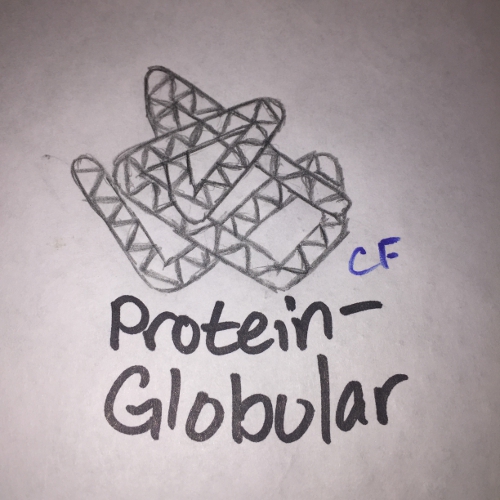 CF
Protein-
Globular